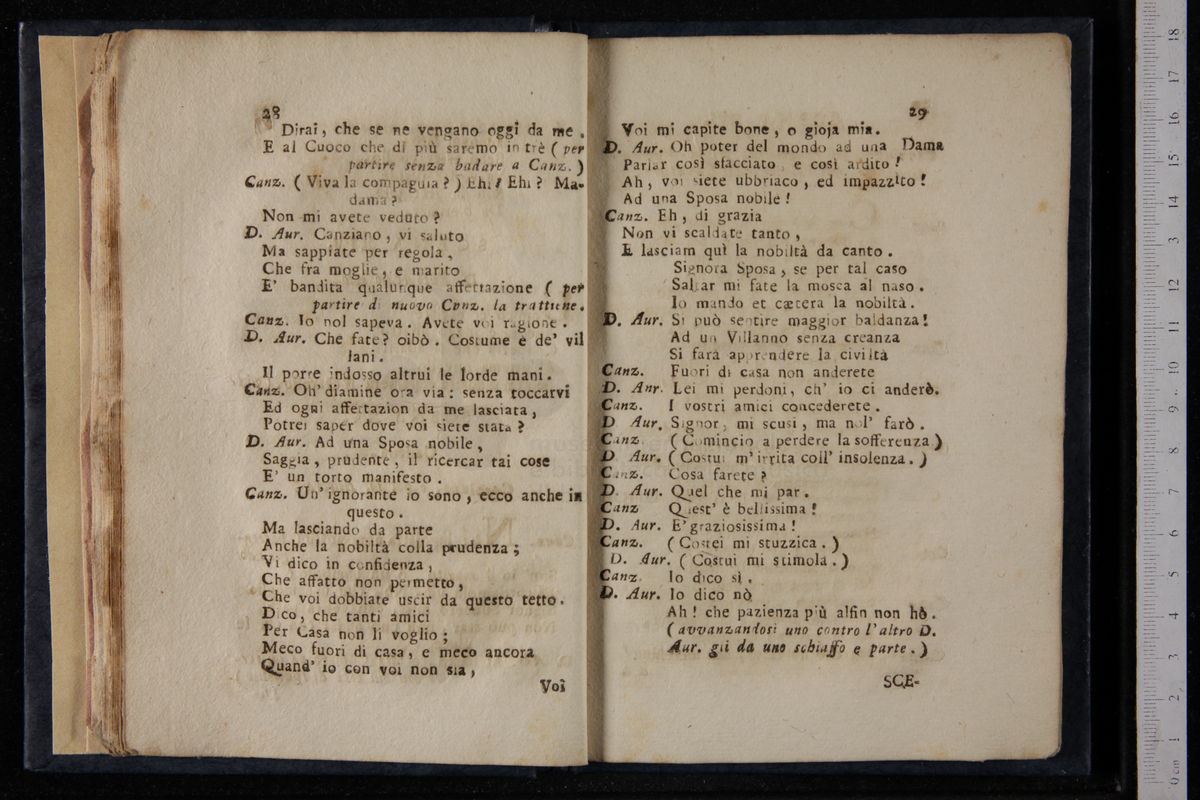 28
Dirai, che se ne vengano oggi da me.
E al Cuoco che di più saremo in trè (per
partire senza badare a Canz.)
Canz. (Viva la compagnia?) Ehi! Ehi? Ma-
dama?
Non mi avete veduto?
D. Aur. Canziano, vi saluto
Ma sappiate per regola,
Che fra moglie, e marito
E' bandita qualunque affettazione (per
partire di nuovo Canz. la trattiene.
Canz. Io nol sapeva. Avete voi ragione.
D. Aur. Che fate? oibò. Costume è de' vil
lani.
Il porre indosso altrui le lorde mani.
Canz. Oh' diamine ora via: senza toccarvi
Ed ogni affettazion da me lasciata,
Potrei saper dove voi siete stata?
D. Aur. Ad una Sposa nobile,
Saggia, prudente, il ricercar tai cose
E' un torto manifesto.
Canz. Un' ignorante io sono, ecco anche in
questo.
Ma lasciando da parte
Anche la nobiltà colla prudenza;
Vi dico in confidenza,
Che affatto non permetto,
Che voi dobbiate uscir da questo tetto.
Dico, che tanti amici
Per Casa non li voglio;
Meco fuori di casa, e meco ancora
Quand' io con voi non sia,
Voi
29
Voi mi capite bone, o gioja mia.
D. Aur. Oh poter del mondo ad una Dama
Parlar così sfacciato, e così ardito!
Ah, voi siete ubbriaco, ed impazzito!
Ad una Sposa nobile!
Canz. Eh, di grazia
Non vi scaldate tanto,
E lasciam quì la nobiltà da canto.
Signora Sposa, se per tal caso
Saltar mi fate la mosca al naso.
Io mando et cætera la nobiltà.
D. Aur. Si può sentire maggior baldanza!
Ad un Villanno senza creanza
Si farà apprendere la civiltà
Canz. Fuori di casa non anderete
D. Anr. Lei mi perdoni, ch' io ci anderò.
Canz. I vostri amici concederete.
D Aur. Signor, mi scusi, ma nol' farò.
Canz. (Comincio a perdere la sofferenza)
D Aur. (Costui m' irrita coll' insolenza.)
Canz. Cosa farete?
D. Aur. Quel che mi par.
Canz Quest' è bellissima!
D. Aur. E' graziosissima!
Canz. (Costei mi stuzzica.)
D. Aur. (Costui mi stimola.)
Canz. Io dico sì.
D. Aur. Io dico nò
Ah! che pazienza più alfin non hò.
(avvanzandosi uno contro l'altro D.
Aur. gli da uno schiaffo e parte.)
SCE-
0 cm 1 2 3 4 5 6 7 8 9 10 11 12 13 14 15 16 17 18